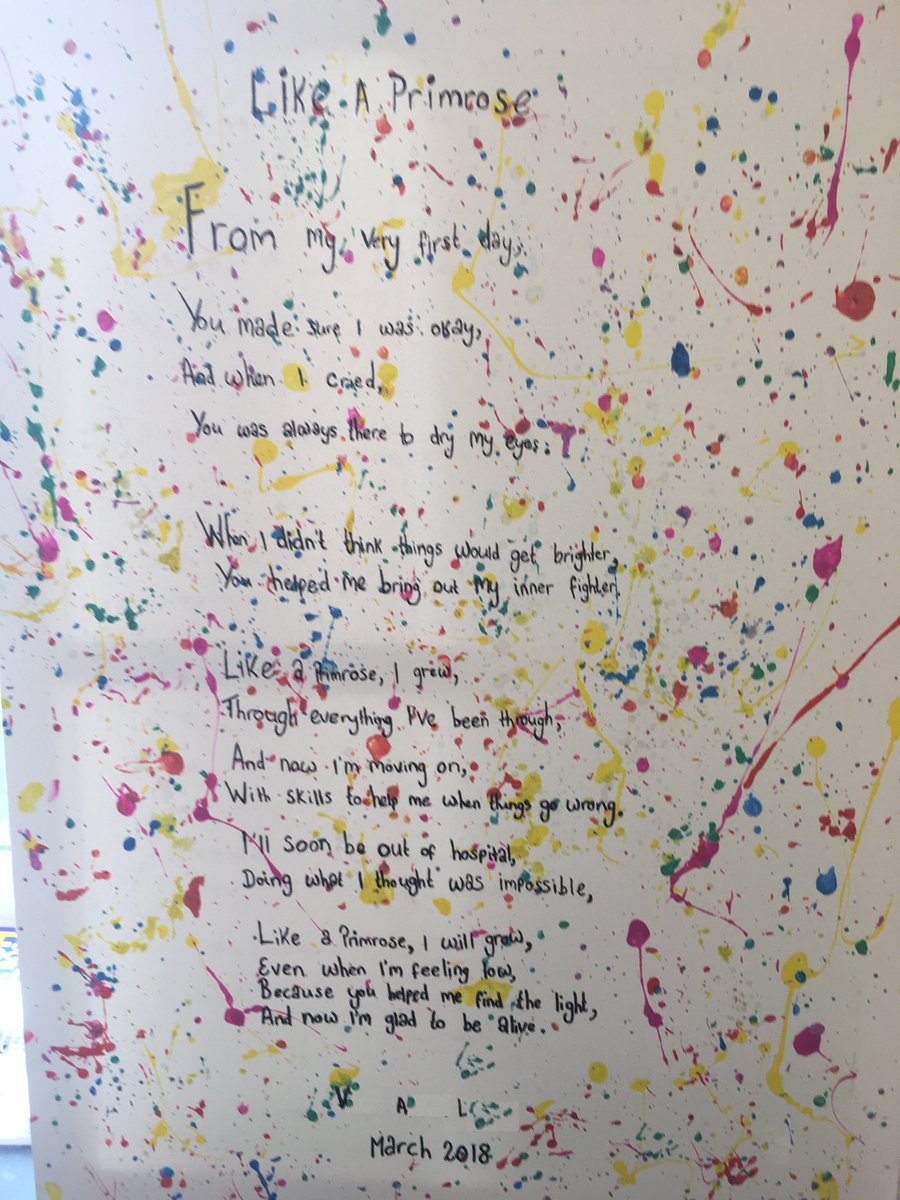 Like A Primrose
From my very first day,
You made sure I was okay,
And when I cried,
You was always there to dry my eyes.
When I didn't think things would get brighter,
You helped me bring out my inner fighter.
Like a Primrose, I grew,
Through everything I've been through,
And now I'm moving on,
With skills to help me when things go wrong.
I'll soon be out of hospital,
Doing what I thought was impossible,
Like a Primrose, I will grow,
Even when I'm feeling low,
Because you helped me find the light,
And now I'm glad to be alive.
V A L
March 2018